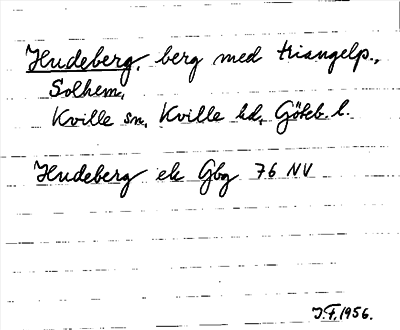 Hudeberg, berg med triangelp.,
Solhem,
Kville sn, Kville hd, Göteb. l.
Hudeberg ek Gbg 76 NV
J.F. 1956.